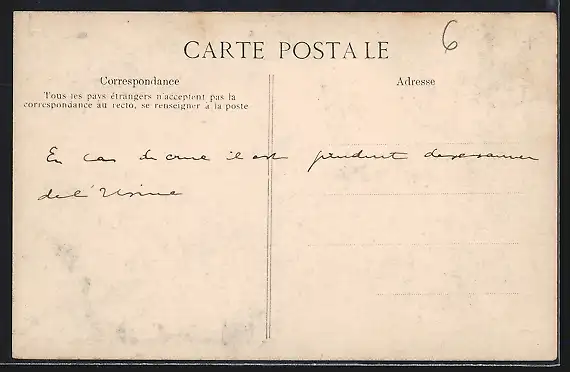 6
CARTE POSTALE
Correspondance
Tous les pays étrangers n'acceptent pas la
correspondance au recto, se renseigner à la poste
Adresse
En cas de crue il est prudent de se sauver
de l'Usine